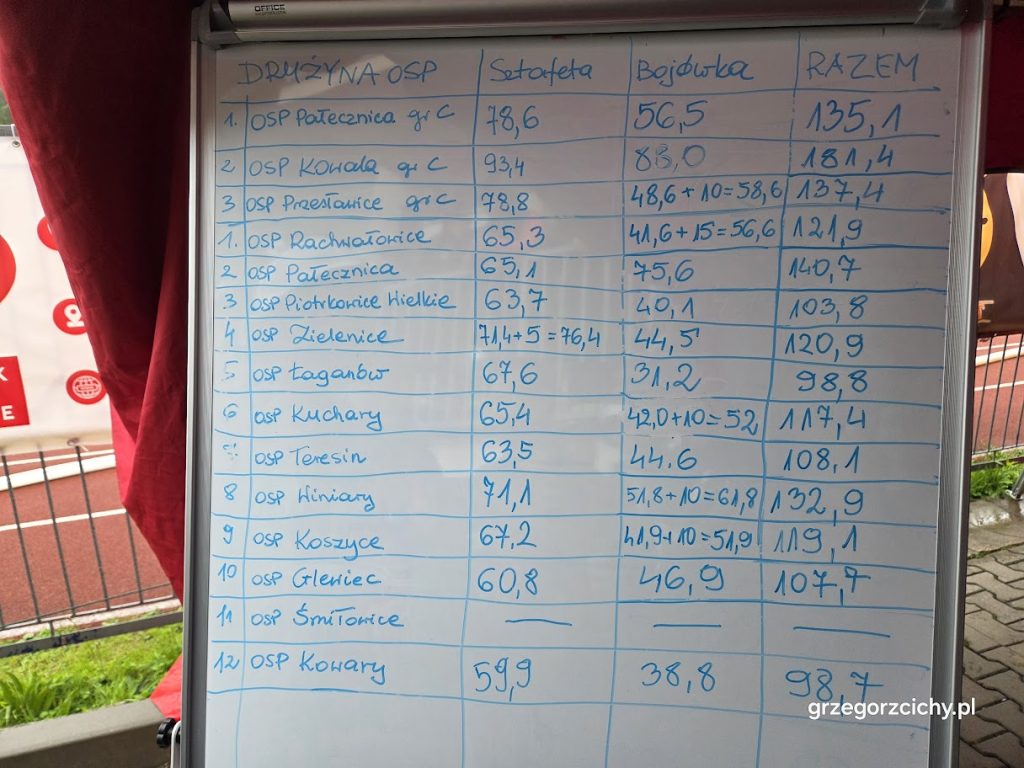 OFFICE
DRUŻYNA OSP Sztafeta Bojówka RAZEM
1. OSP Pałecznica gr C 78,6 56,5 135,1
2 OSP Kowala gr C 93,4 88,0 181,4
3 OSP Przesławice gr C 78,8 48,6 + 10 = 58,6 137,4
1. OSP Rachwałowice 65,3 41,6 + 15 = 56,6 121,9
2 OSP Pałecznica 65,1 75,6 140,7
3 OSP Piotrkowice Wielkie 63,7 40,1 103,8
4 OSP Zielenice 71,4 + 5 = 76,4 44,5 120,9
5 OSP Łaganów 67,6 31,2 98,8
6 OSP Kuchary 65,4 42,0 + 10 = 52 117,4
OSP Teresin 63,5 44.6 108,1
8 OSP Winiary 71,1 51,8 + 10 = 61,8 132,9
9 OSP Koszyce 67,2 41,9 + 10 = 51,9 119,1
10 OSP Gleniec 60,8 46,9 107,7
11 OSP Śmiłowice — — —
12 OSP Kowary 59,9 38,8 98,7
grzegorzcichy.pl